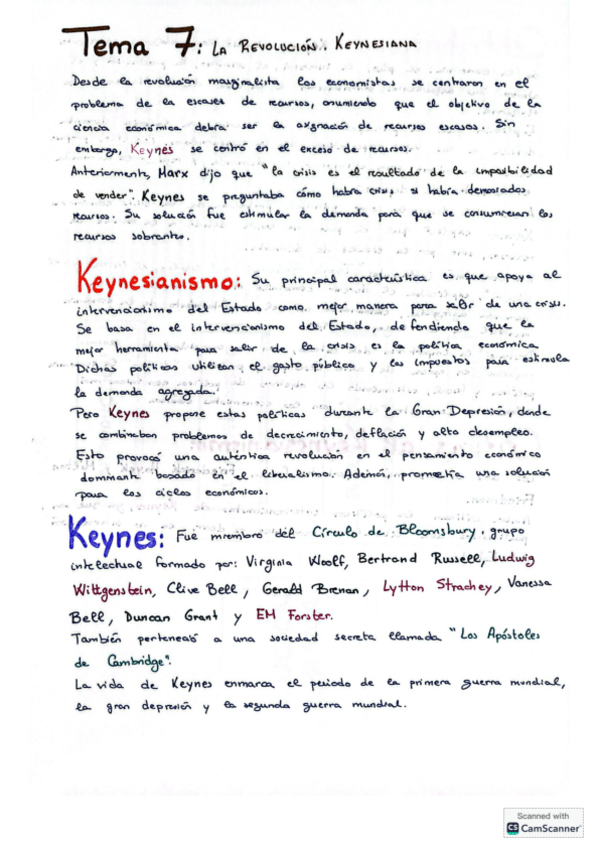 Tema 7: LA REVOLUCIÓN. KEYNESIANA
Desde la revolución marginalista los economistas se centraron en el
problema de la escases de recursos, asumiendo que el objetivo de la
ciencia económica debra ser la asignación de recursos escasos. Sin
embargo, Keynes se centró en el exceso de recursos.
Anteriormente, Marx dijo que "la crisis es el resultado de la imposibilidad
de vender". Keynes se preguntaba cómo habra crisis si había demasiados
recursos. Su solución fue estimular la demanda para que se consumieran los
recursos sobrantes.
Keynesianismo: Su principal característica es que apoya al
intervencionismo del Estado como mejor manera para salir de una crisis.
Se basa en el intervencionismo del Estado, defendiendo que la
mejor herramienta para salir de la crisis es la política económica.
Dichas políticas utilizan el gasto público y los impuestos para estimula
la demanda agregada.
Pero Keynes propone estas políticas durante la Gran Depresión, donde
se combinaban problemas de decrecimiento, deflación y alto desempleo.
Esto provocó una auténtica revolución en el pensamiento económico
dominante basado en el liberalismo. Además, prometía una solución
para los ciclos económicos.
Keynes: Fue miembro del Círculo de Bloomsbury, grupo
intelectual formado por: Virginia Woolf, Bertrand Russell, Ludwig
Wittgenstein, Clive Bell, Gerald Brenan, Lytton Strachey, Vanessa
Bell, Duncan Grant y EM Forster.
También perteneció a una sociedad secreta llamada "Los Apóstoles
de Cambridge".
La vida de Keynes enmarca el periodo de la primera guerra mundial,
la gran depresión y la segunda guerra mundial.
Scanned with
CS CamScanner